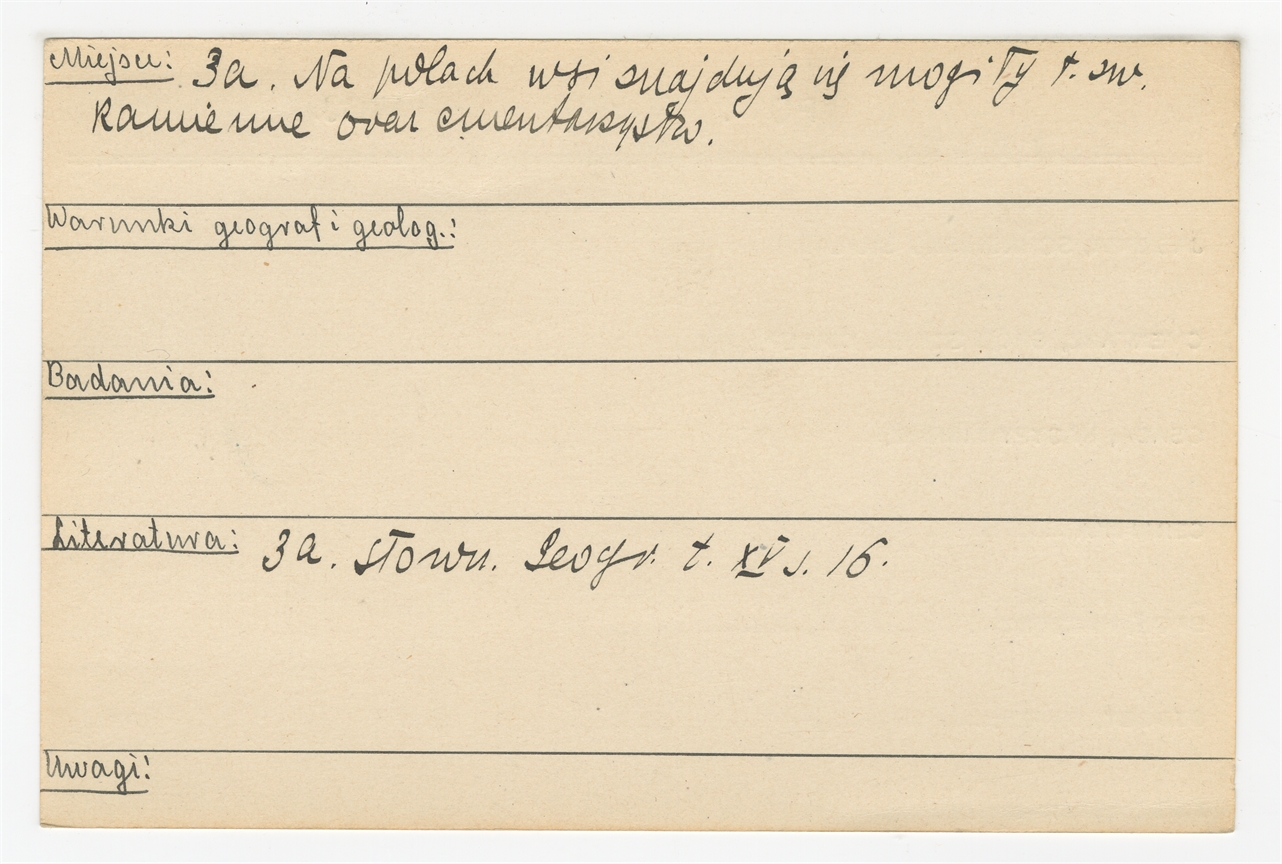 Miejsce: 3a. Na polach wsi znajdują się mogiły t. zw.
kamienne oraz cmentarzysko.
Warunki geograf i geolog.:
Badania:
Literatura: 3a. Słown. Geogr. t. XV s. 16.
Uwagi: